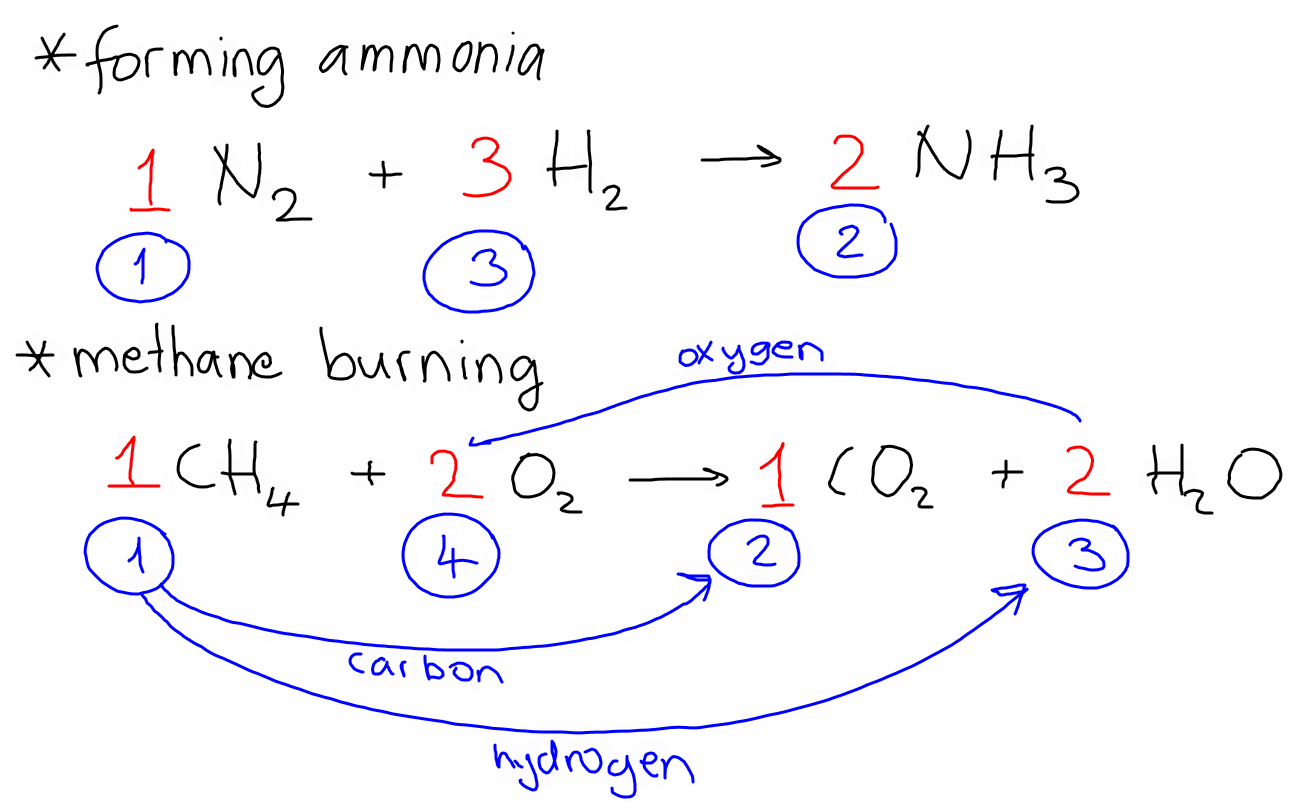 *forming ammonia
1 N₂ + 3 H₂ → 2 NH₃
1 3 2
*methane burning
oxygen
1 CH₄ + 2 O₂ → 1 CO₂ + 2 H₂O
1 4 2 3
carbon
hydrogen